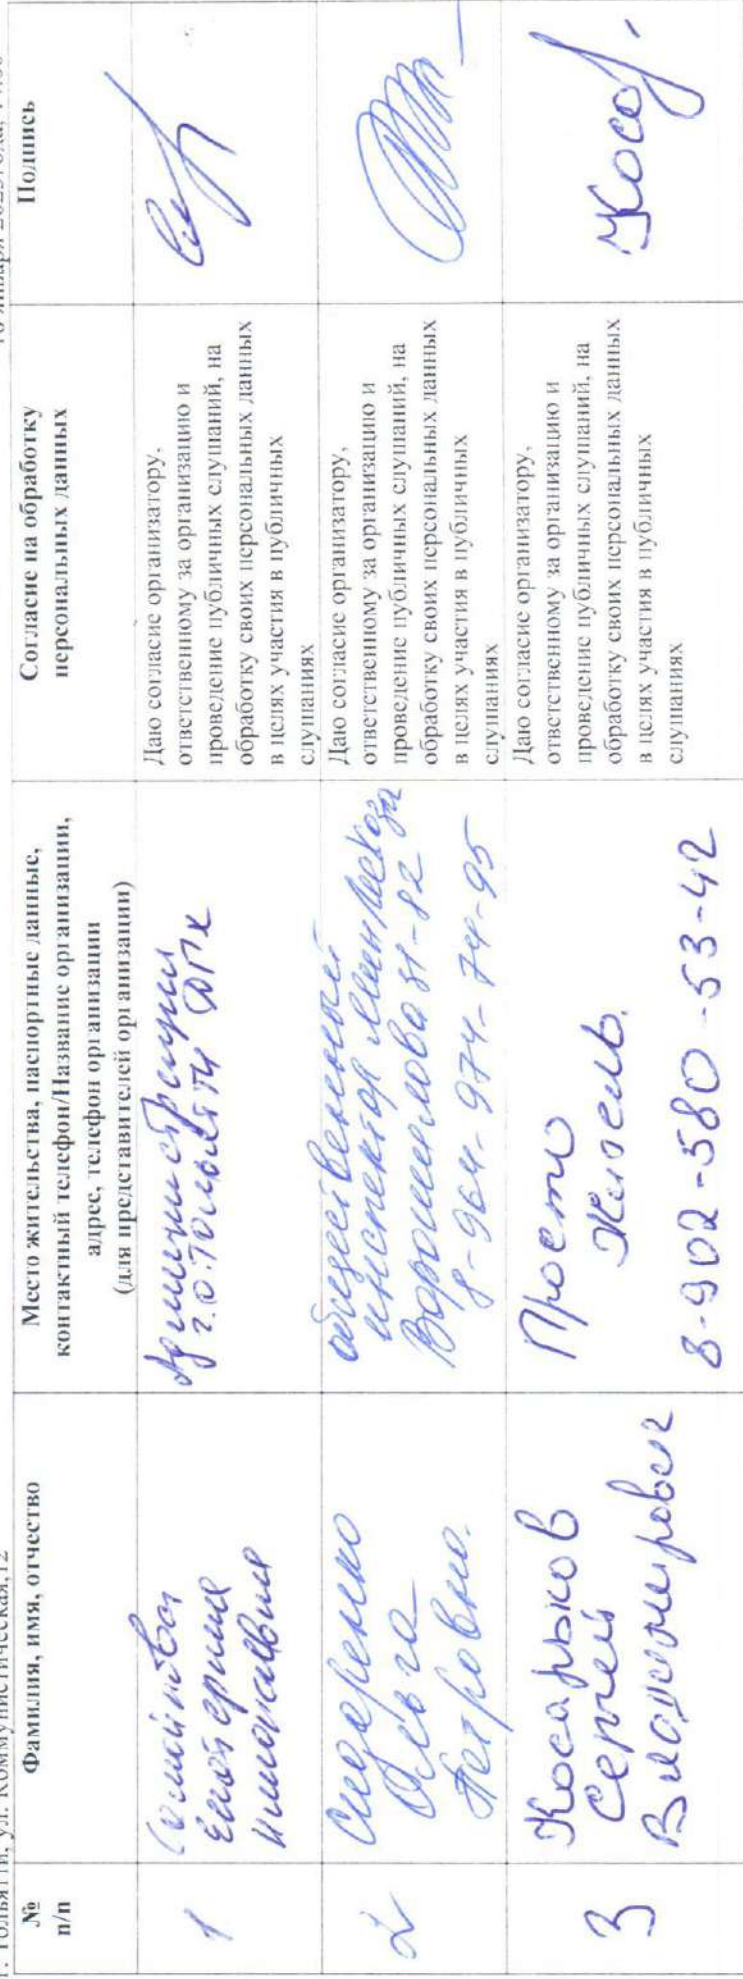 г. Тольятти, ул. Коммунистическая,12
№
п/п
Фамилия, имя, отчество
Место жительства, паспортные данные,
контактный телефон/Название организации,
адрес, телефон организации
(для представителей организации)
Согласие на обработку
персональных данных
Подпись
1
Екатерина
Администрация
г.о. Тольятти
Даю согласие организатору,
ответственному за организацию и
проведение публичных слушаний, на
обработку своих персональных данных
в целях участия в публичных
слушаниях
2
Сидоренко
Ольга
Петровна.
общественный
инспектор
Ворошилова 51-82
8-964-974-74-95
Даю согласие организатору,
ответственному за организацию и
проведение публичных слушаний, на
обработку своих персональных данных
в целях участия в публичных
слушаниях
3
Косарьков
Сергей
Владимирович
Просто
Житель.
8-902-580-53-42
Даю согласие организатору,
ответственному за организацию и
проведение публичных слушаний, на
обработку своих персональных данных
в целях участия в публичных
слушаниях